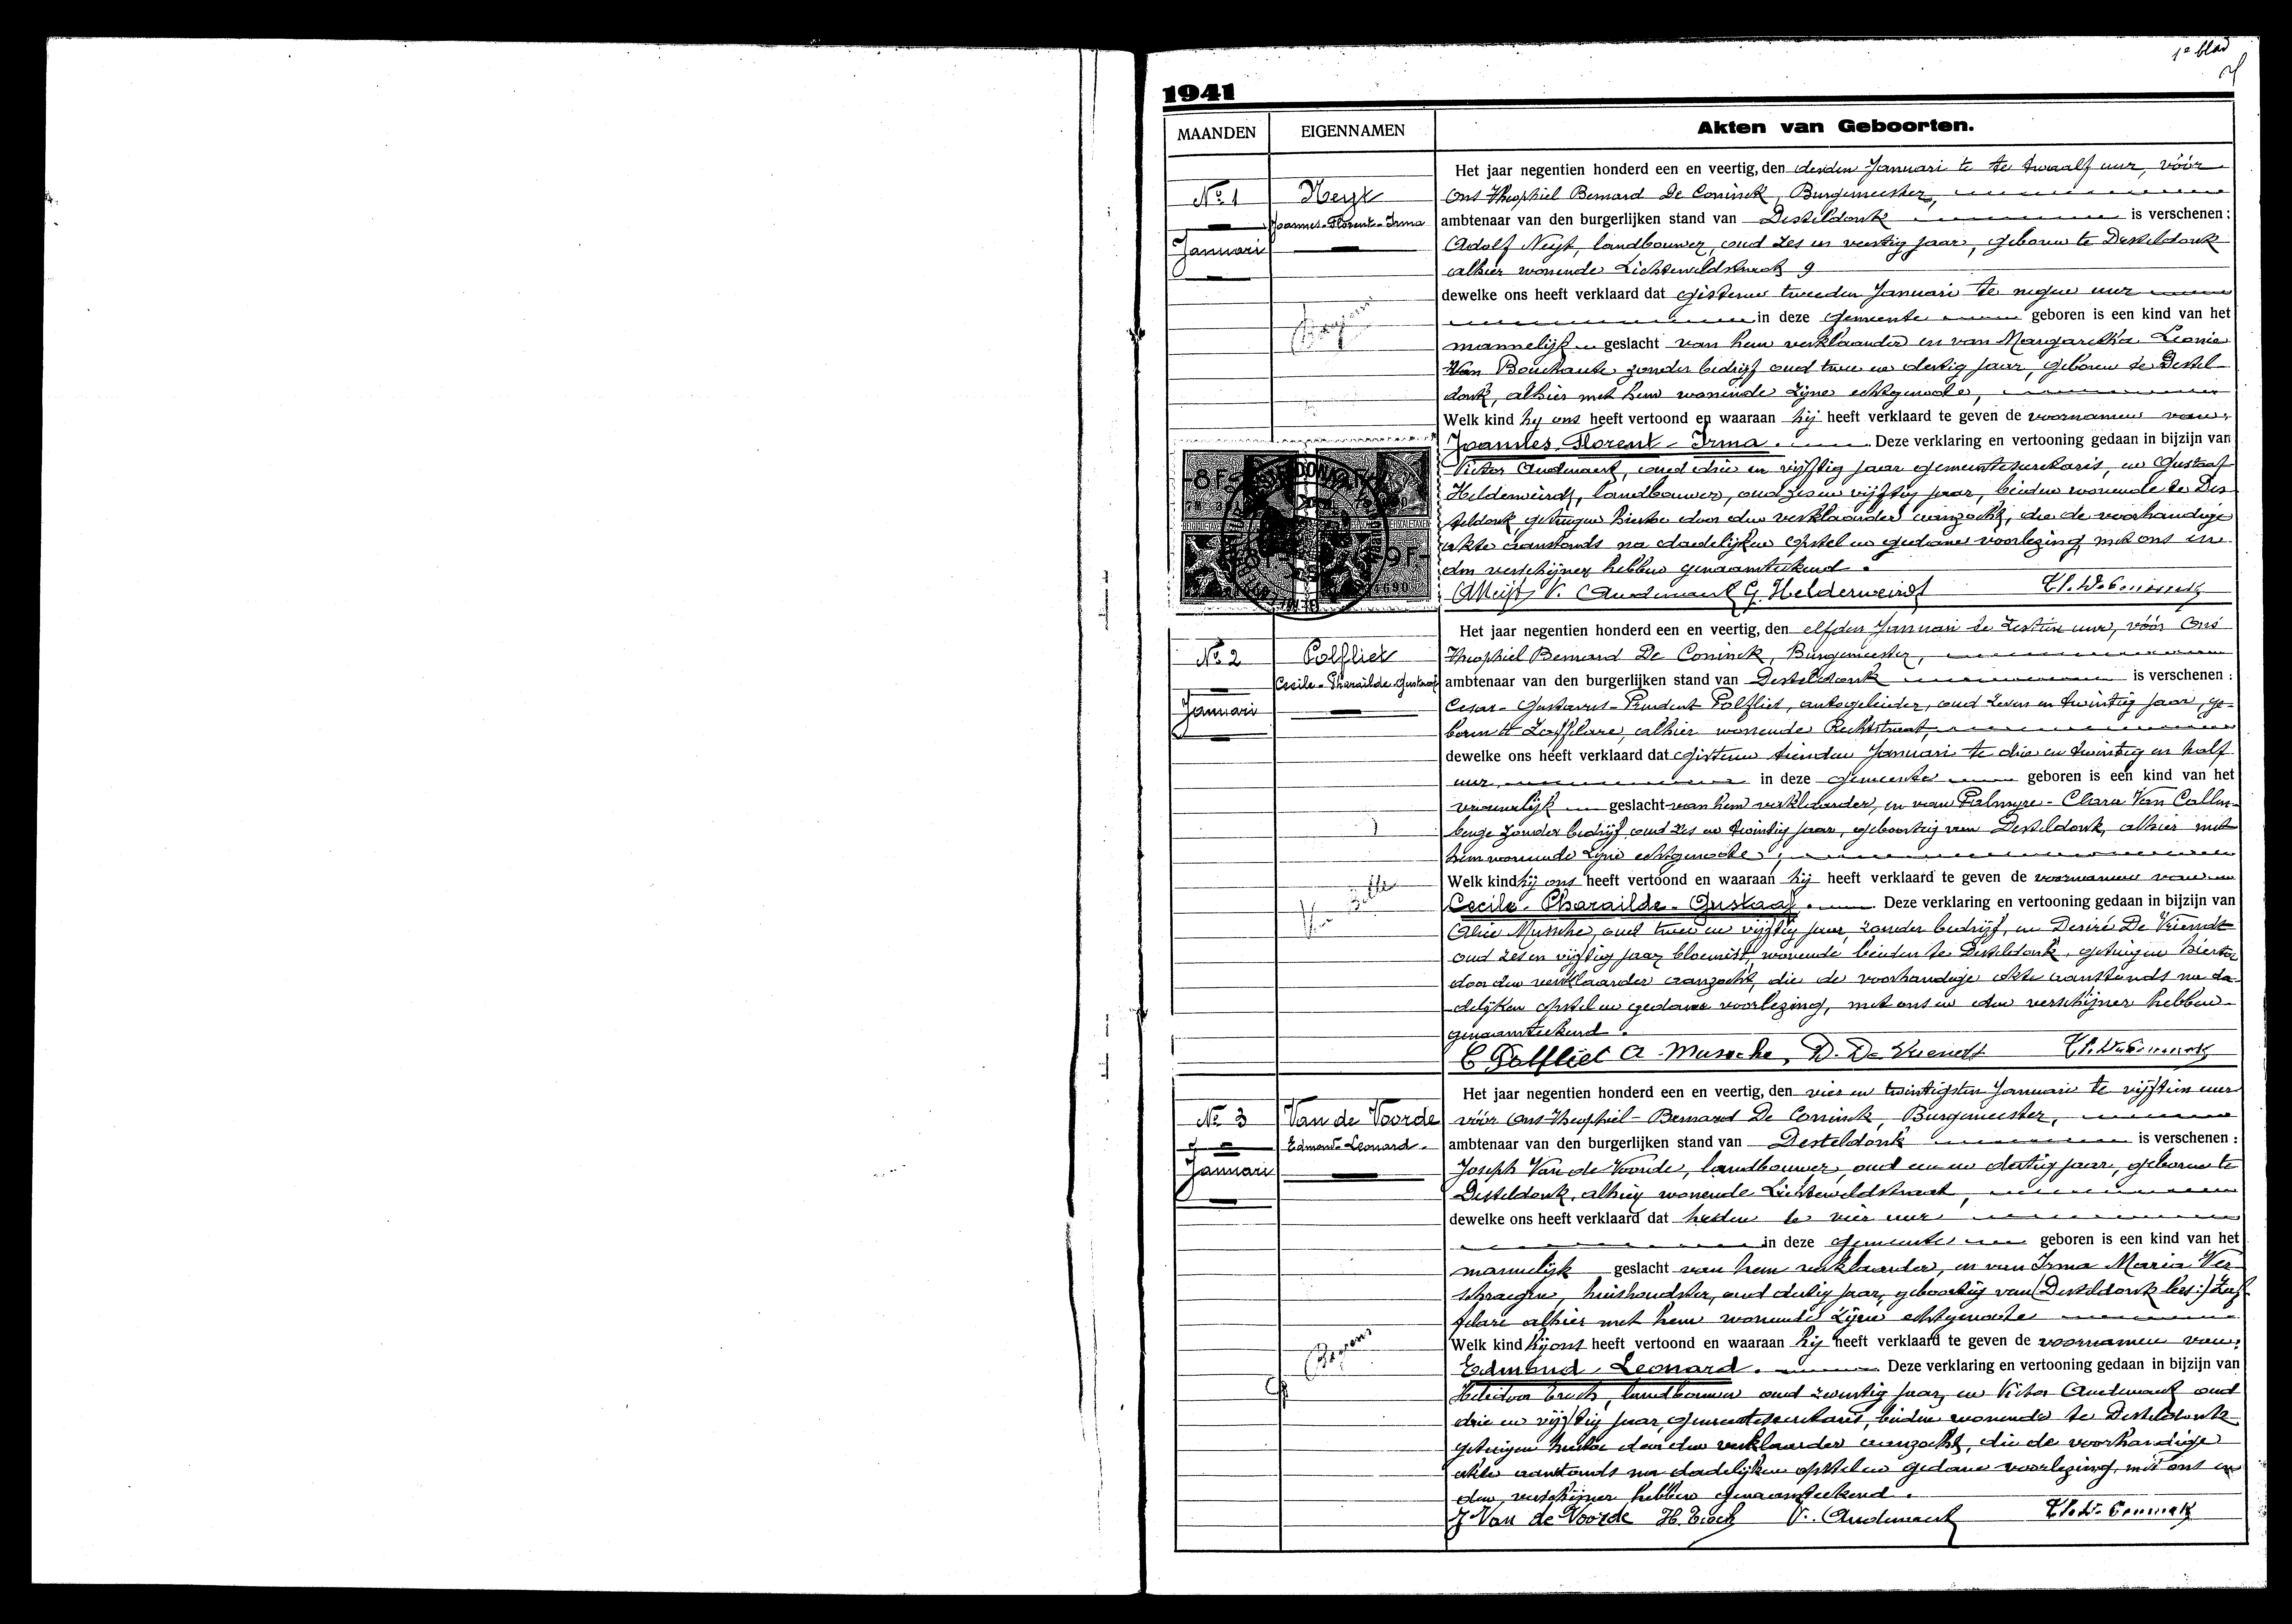 1e blad
1941
MAANDEN EIGENNAMEN Akten van Geboorten.
No 1
Januari
Neyt
Joannes-Florent-Irma
Het jaar negentien honderd een en veertig, den derden Januari te twaalf uur, vóór
Ons Theophiel Bernard De Coninck, Burgemeester,
ambtenaar van den burgerlijken stand van Desteldonk is verschenen :
Adolf Neyt, landbouwer, oud zes en veertig jaar, geboren te Desteldonk
alhier wonende Lichtenveldstraat 9
dewelke ons heeft verklaard dat gisteren tweeden Januari te negen uur
in deze gemeente geboren is een kind van het
mannelijk geslacht van hem verklaarder en van Margaretha Leonie
Van Bouchaute zonder bedrijf oud twee en dertig jaar, geboren te Destel-
donk, alhier met hem wonende zijne echtgenoote,
Welk kind hij ons heeft vertoond en waaraan hij heeft verklaard te geven de voornamen van:
Joannes-Florent-Irma. Deze verklaring en vertooning gedaan in bijzijn van
Victor Audenaert, oud drie en vijftig jaar gemeentesecretaris, en Gustaaf
Helderweirdt, landbouwer, oud zes en vijftig jaar, beiden wonende te Des-
teldonk, getuigen hiertoe door den verklaarder aanzocht, die de voorhandige
akte aanstonds na dadelijken opstel en gedane voorlezing met ons en
den verschijner hebben genaamteekend.
A Neijt V. Audenaert G. Helderweirdt Th. De Coninck
No 2
Januari
Polfliet
Cecile-Pharailde-Gustaaf
Het jaar negentien honderd een en veertig, den elfden Januari te zestien uur, vóór Ons
Theophiel Bernard De Coninck, Burgemeester,
ambtenaar van den burgerlijken stand van Desteldonk is verschenen :
Cesar-Gustavus-Prudent Polfliet, autogeleider, oud zeven en twintig jaar, ge-
boren te Zaffelare, alhier wonende Rechtstraat,
dewelke ons heeft verklaard dat gisteren tienden Januari te drie en twintig en half
uur, in deze gemeente geboren is een kind van het
vrouwelijk geslacht van hem verklaarder, en van Palmyre-Clara Van Callen-
berge zonder bedrijf oud zes en twintig jaar, geboortig van Desteldonk, alhier met
hem wonende zijne echtgenoote,
Welk kind hij ons heeft vertoond en waaraan hij heeft verklaard te geven de voornamen van
Cecile-Pharailde-Gustaaf. Deze verklaring en vertooning gedaan in bijzijn van
Alice Mussche, oud twee en vijftig jaar, zonder bedrijf, en Desiré De Vriendt
oud zes en vijftig jaar bloemist, wonende beiden te Desteldonk, getuigen hiertoe
door den verklaarder aanzocht, die de voorhandige akte aanstonds na da-
delijken opstel en gedane voorlezing, met ons en den verschijner hebben
genaamteekend.
C Polfliet A. Mussche, D. De Vriendt Th. De Coninck
No 3
Januari
Van de Voorde
Edmond-Leonard.
Het jaar negentien honderd een en veertig, den vier en twintigsten Januari te vijftien uur
vóór Ons Theophiel-Bernard De Coninck, Burgemeester,
ambtenaar van den burgerlijken stand van Desteldonk is verschenen :
Joseph Van de Voorde, landbouwer, oud een en dertig jaar, geboren te
Desteldonk, alhier wonende Lichtenveldstraat,
dewelke ons heeft verklaard dat heden te vier uur
in deze gemeente geboren is een kind van het
mannelijk geslacht van hem verklaarder, en van Irma Maria Ver-
schraegen, huishoudster, oud dertig jaar, geboortig van (Desteldonk lees:) Zaf-
felare alhier met hem wonende zijne echtgenoote
Welk kind hij ons heeft vertoond en waaraan hij heeft verklaard te geven de voornamen van:
Edmond-Leonard. Deze verklaring en vertooning gedaan in bijzijn van
landbouwer oud twintig jaar, en Victor Audenaert oud
drie en vijftig jaar, gemeentesecretaris, beiden wonende te Desteldonk
getuigen hiertoe door den verklaarder aanzocht, die de voorhandige
akte aanstonds na dadelijken opstel en gedane voorlezing, met ons en
den verschijner hebben genaamteekend.
J Van de Voorde V. Audenaert Th. De Coninck